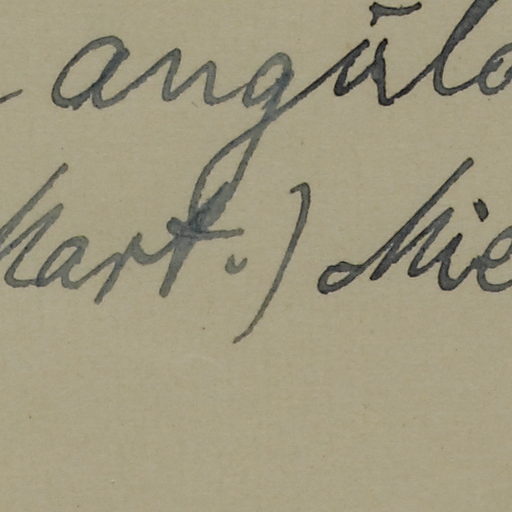 angŭlo
Mart.) Mie